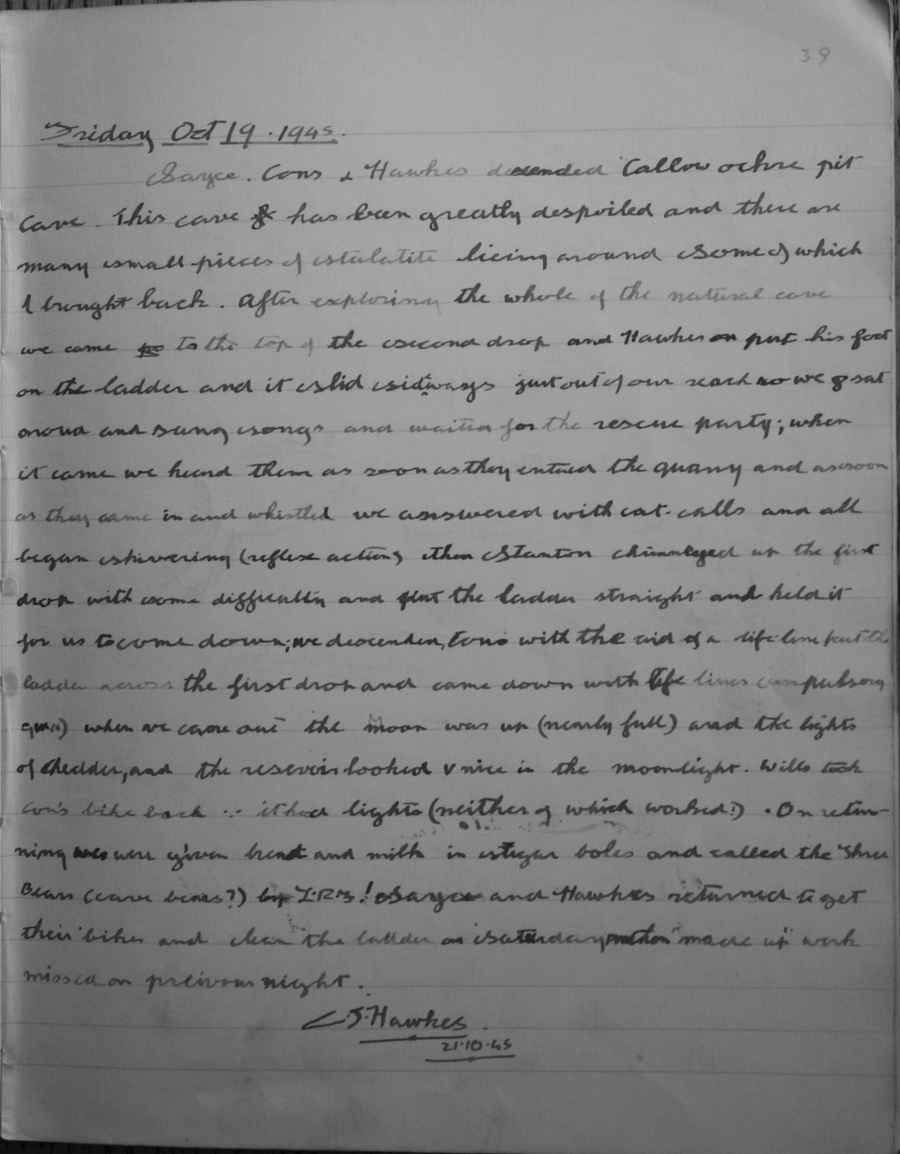 39
Friday Oct 19. 1945.
Sayce. Cons & Hawkes descended Callow ochre pit
Cave. This cave has been greatly despoiled and there are
many small pieces of stalatite lieing around some of which
I brought back. After exploring the whole of the natural cave
we came to the top of the second drop and Hawkes put his foot
on the ladder and it slid sidways just out of our reach so we sat
around and sung songs and waited for the rescue party; when
it came we heard them as soon as they entered the quarry and as soon
as they came in and whistled we answered with cat-calls and all
began shivering (reflex action) then Stanton chimneyed up the first
drop with some difficulty and put the ladder straight and held it
for us to come down; we descended, Cons with the aid of a life-line put the
ladder across the first drop and came down with life lines (
) when we came out the moon was up (nearly full) and the lights
of Chedder, and the resevoir looked v nice in the moonlight. Wills took
Con's bike back ∵ it had lights (neither of which worked!) . On retur-
ning were given bread and milk in boles and called the three
Bears (cave bears?) by I.R.S! Sayce and Hawkes returned to get
their bikes and clear the ladder on Saturday "made up" work
missed on previous night.
C.J. Hawkes.
21.10.45